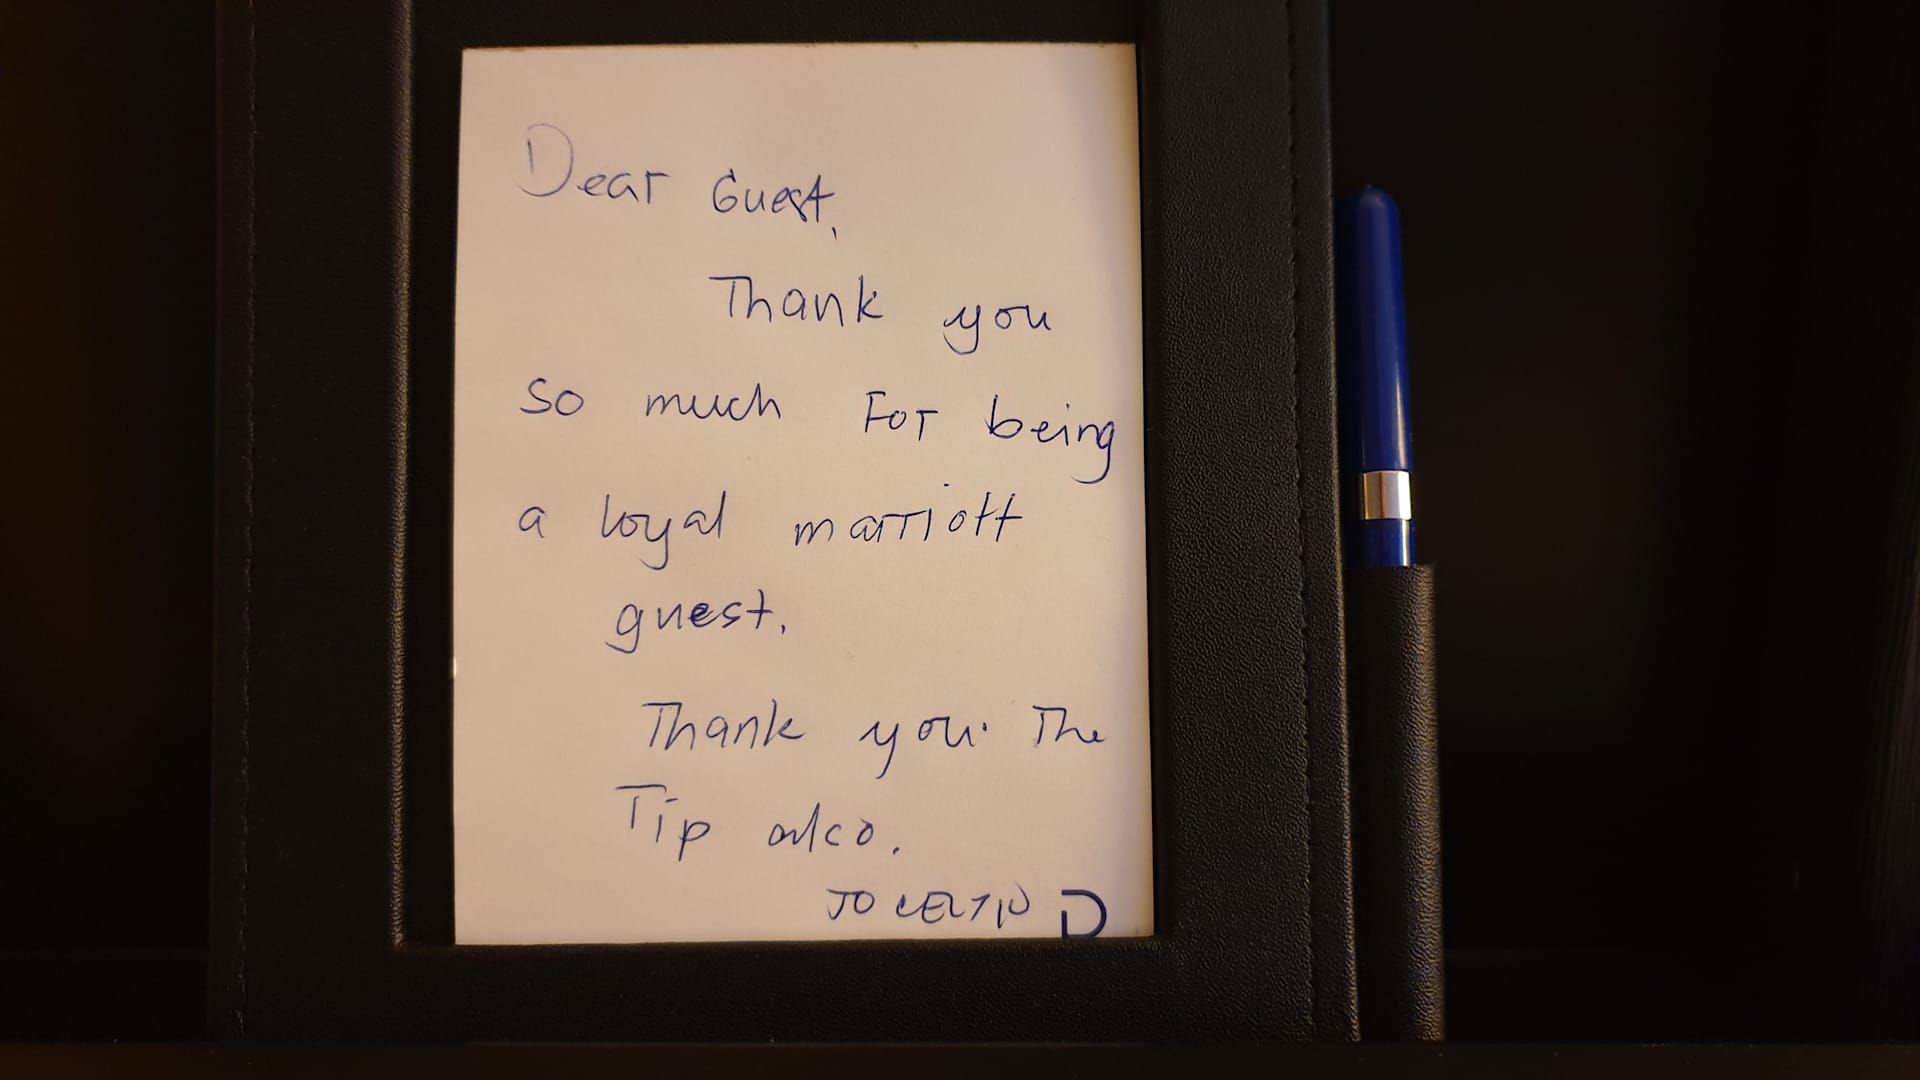 Dear Guest,
Thank you
so much For being
a loyal marriott
guest.
Thank you. The
Tip also.
JOCELYN D